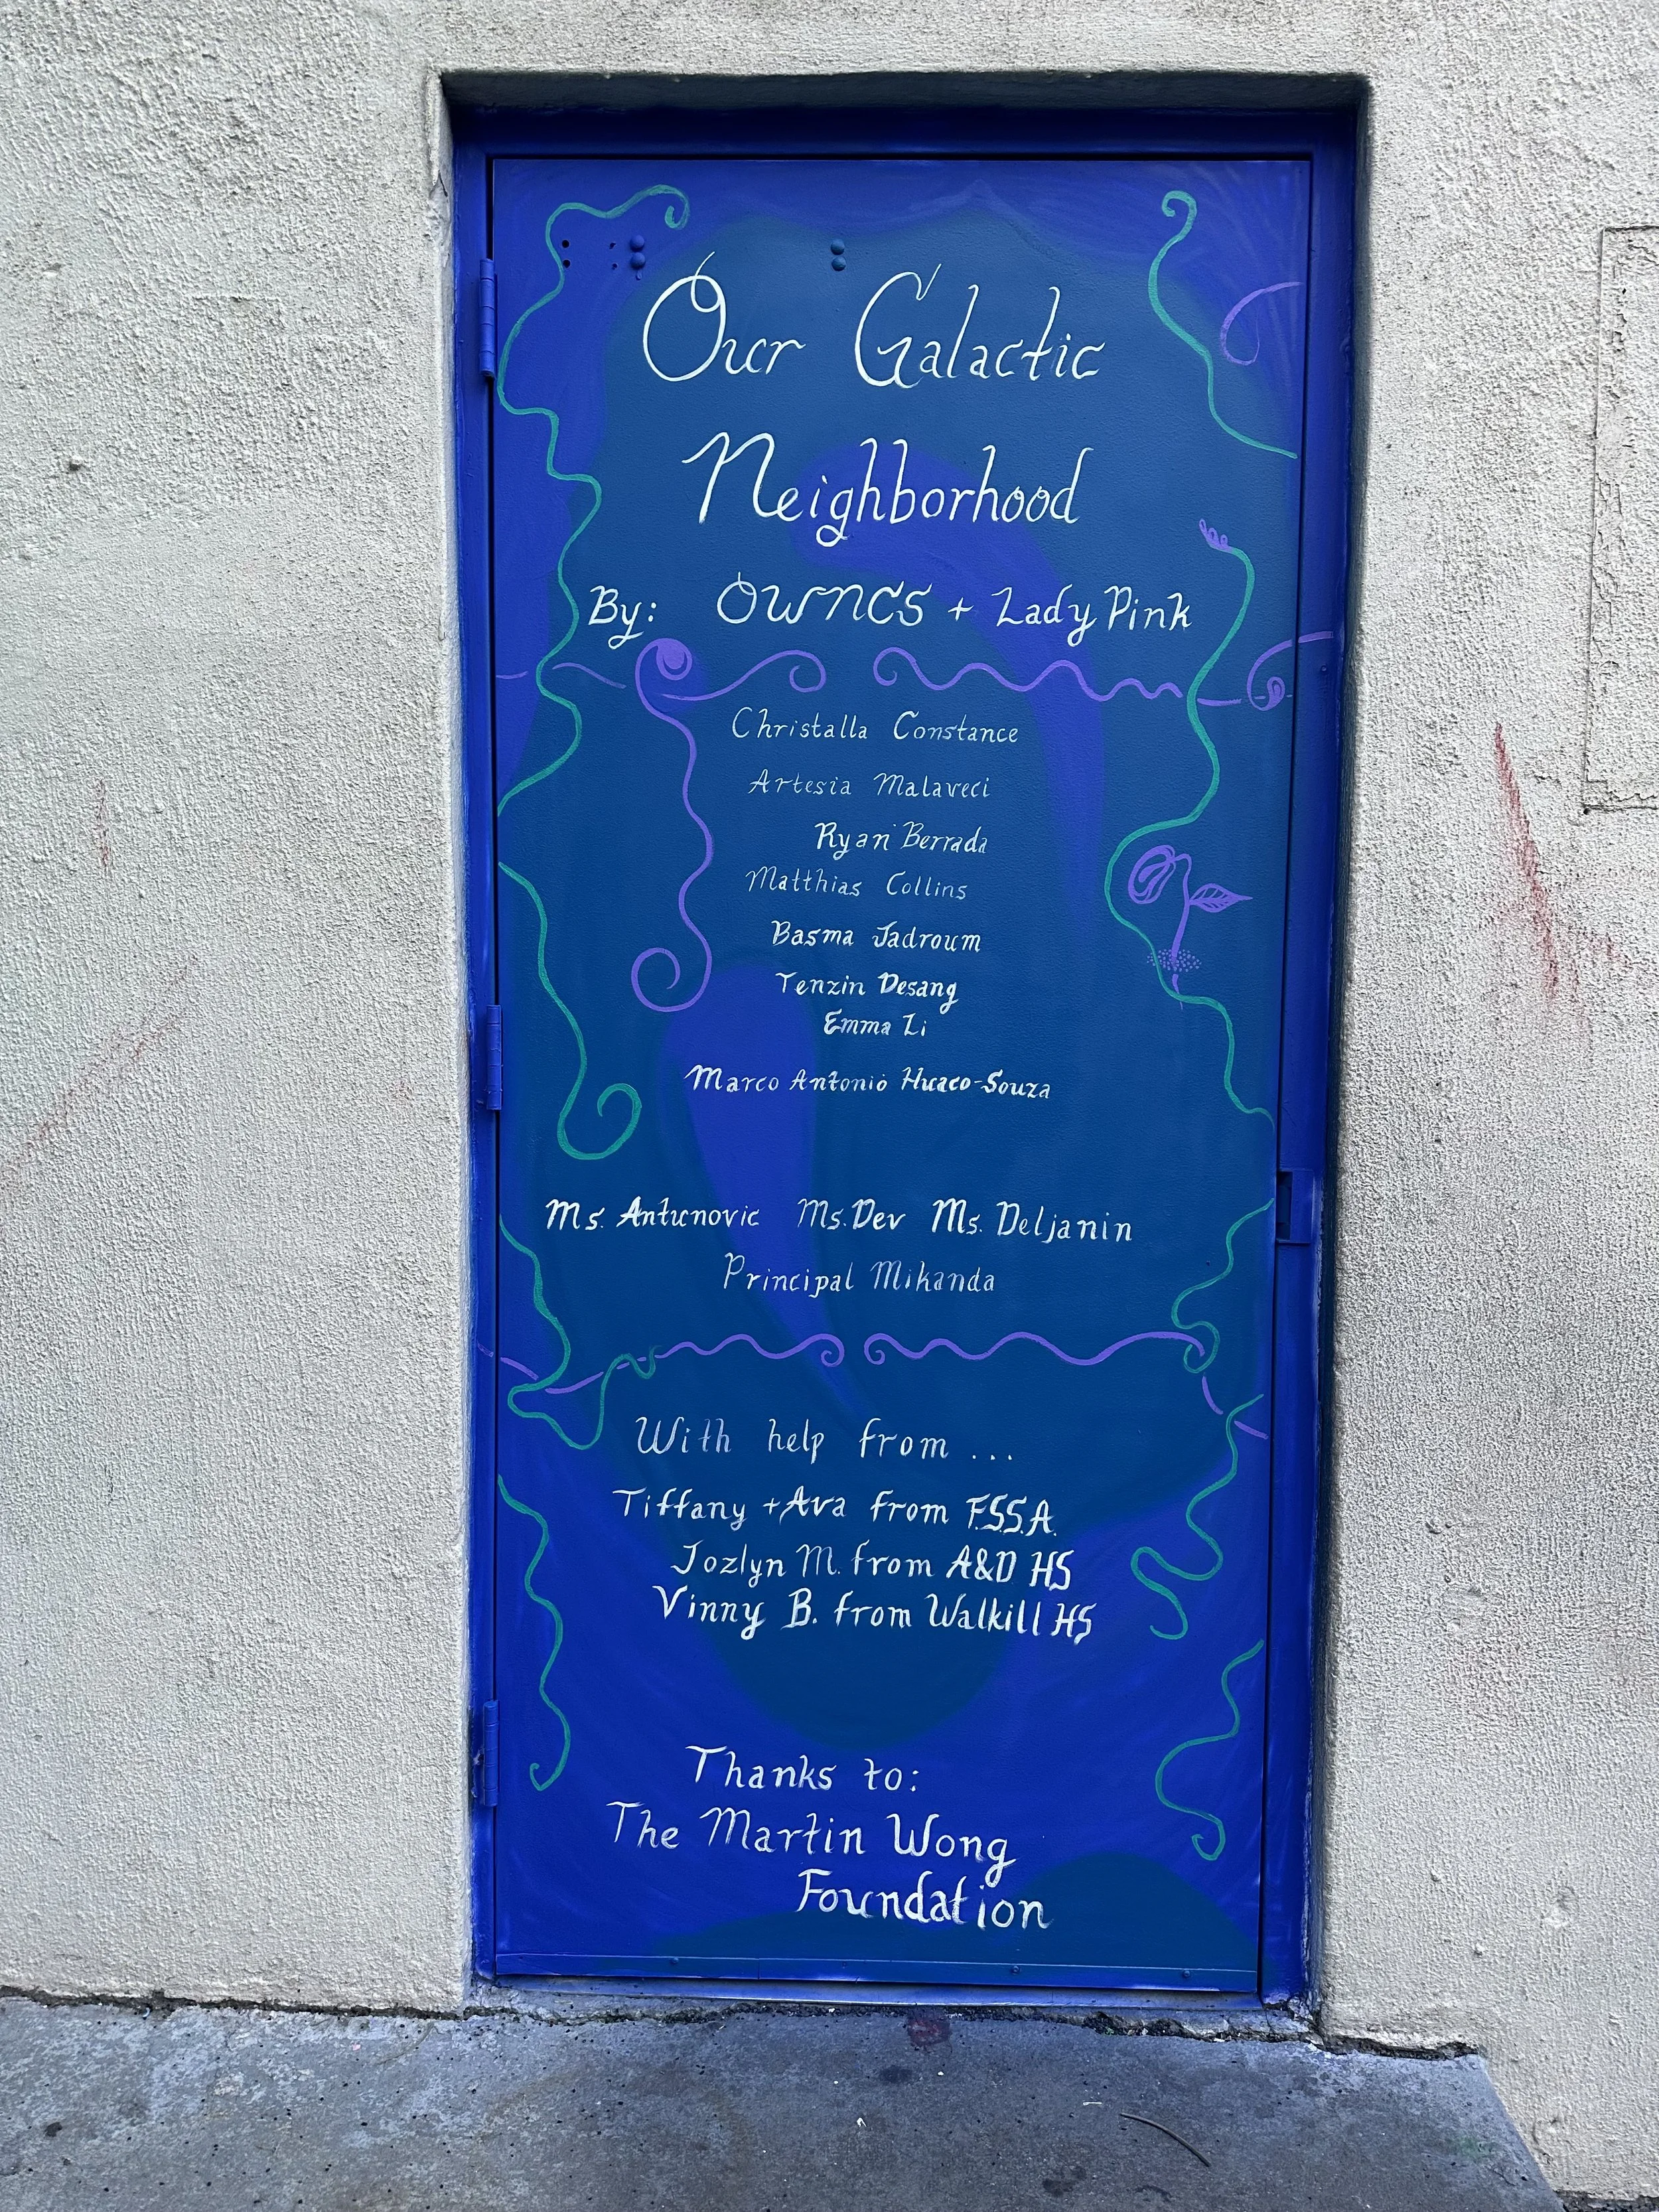 Our Galactic
Neighborhood
By: OWNCS + Lady Pink
Christalla Constance
Artesia Malaveci
Ryan Berrada
Matthias Collins
Basma Jadroum
Tenzin Desang
Emma Li
Marco Antonio Huaco-Souza
Ms. Antunovic Ms. Dev Ms. Deljanin
Principal Mikanda
With help from ...
Tiffany + Ava from F.S.S.A.
Jozlyn M. from A&D HS
Vinny B. from Walkill HS
Thanks to:
The Martin Wong
Foundation